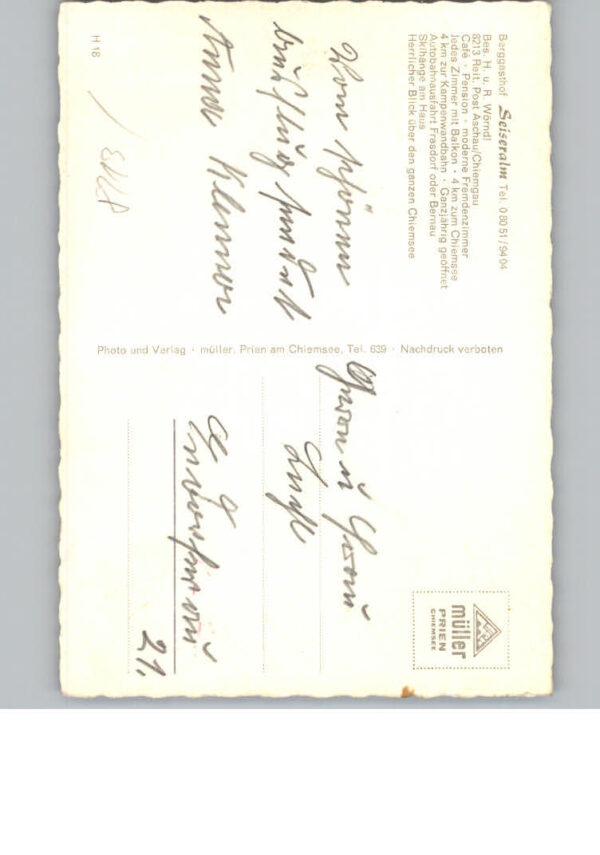 Berggasthof Seiseralm Tel. 08051/9404
Bes. H. u. R. Wörndl
8213 Reit, Post Aschau/Chiemgau
Café · Pension · moderne Fremdenzimmer
Jedes Zimmer mit Balkon · 4 km zum Chiemsee
4 km zur Kampenwandbahn · Ganzjährig geöffnet
Autobahnausfahrt Frasdorf oder Bernau
Skihänge am Haus
Herrlicher Blick über den ganzen Chiemsee
Vom schönen
Ausflug sendet
H 18
Photo und Verlag · müller, Prien am Chiemsee, Tel. 639 · Nachdruck verboten
müller
PRIEN
CHIEMSEE
Herrn u Frau
21.